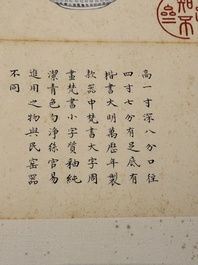 高一寸深八分口徑
四寸七分有足底有
楷書大明萬歷年製
款器中梵書大字周
畫梵書小字質釉純
潔青色勻淨係官易
進用之物與民窑器
不同